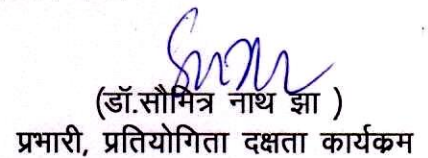 (डॉ.सौमित्र नाथ झा )
प्रभारी, प्रतियोगिता दक्षता कार्यकम